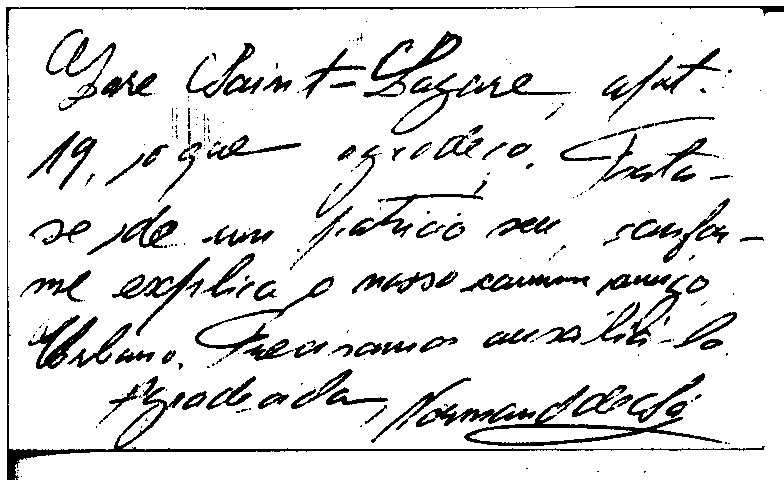 Gare Saint-Lazare, apt.
19, o que agradeço. Trata-
se de um patricio seu, confor-
me explica o nosso comum amigo
Urbano. Precisamos auxiliá-lo.
Agradecida, Normand de Sá